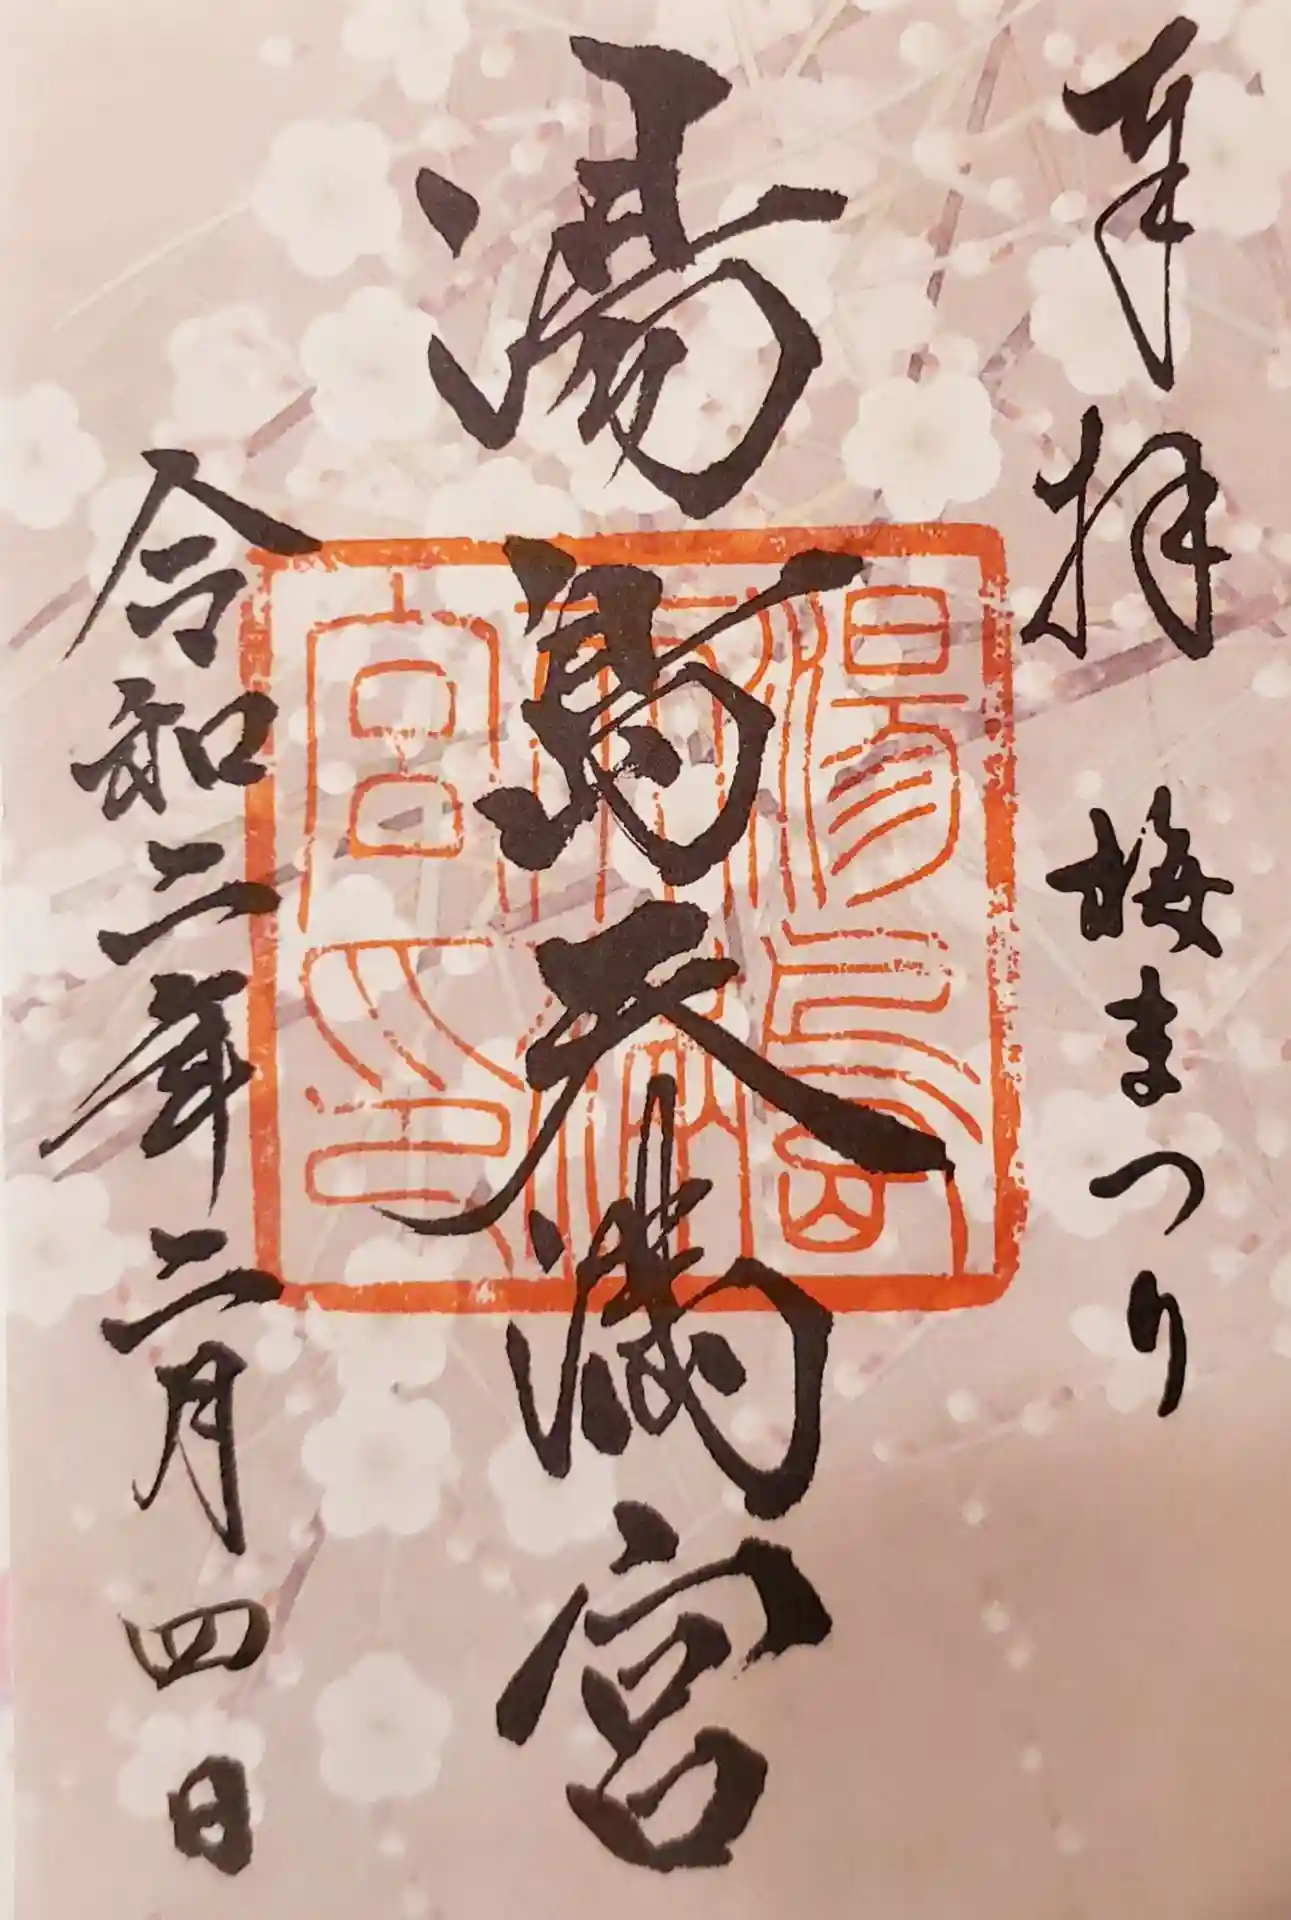 奉拝 梅まつり
湯島天満宮
令和二年二月四日
湯島
天神
宮印